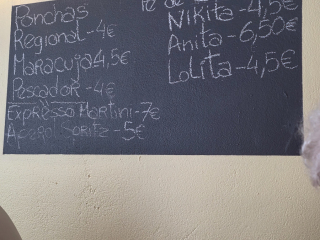 Ponchas
Regional - 4€
Maracujá 4,5€
Pescador - 4€
Expresso Martini - 7€
Aperol Spritz - 5€
Pé de
Nikita - 4,5€
Anita - 6,50€
Lolita - 4,5€